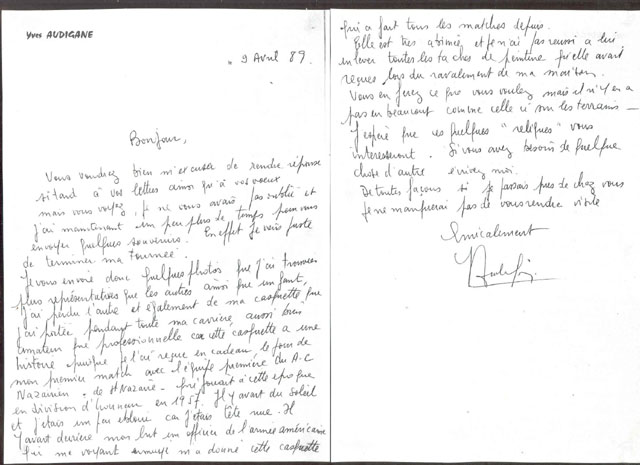 Yves AUDIGANE
9 Avril 89.
Bonjour,
Vous voudrez bien m'excuser de rendre réponse
si tard à vos lettres ainsi qu'à vos voeux
mais vous voyez, je ne vous avais pas oublié et
j'ai maintenant un peu plus de temps pour vous
envoyer quelques souvenirs. En effet je viens juste
de terminer ma tournée.
Je vous envoie donc quelques photos que j'ai trouvées
plus représentatives que les autres ainsi que un gant,
j'ai perdu l'autre et également de ma casquette que
j'ai portée pendant toute ma carrière, aussi bien
amateur que professionnelle car cette casquette a une
histoire puisque je l'ai reçue en cadeau le jour de
mon premier match avec l'équipe première du A.C
Nazairien - de St Nazaire - qui jouait à cette époque
en division d'honneur en 1957. Il y avait du soleil
et j'étais un peu ébloui car j'étais tête nue. Il
y avait derrière mon but un officier de l'armée américaine
qui me voyant ennuyé m'a donné cette casquette
qui a fait tous les matches depuis.
Elle est très abimée et je n'ai pas reussi a lui
enlever toutes les taches de peinture qu'elle avait
reçues lors du ravalement de ma maison.
Vous en ferez ce que vous voulez mais il n'y en a
pas en beaucoup comme celle ci sur les terrains -
J'espère que ces quelques "reliques" vous
interesseront. Si vous avez besoin de quelque
chose d'autre écrivez moi.
De toutes façons si je passais près de chez vous
je ne manquerai pas de vous rendre visite
Amicalement